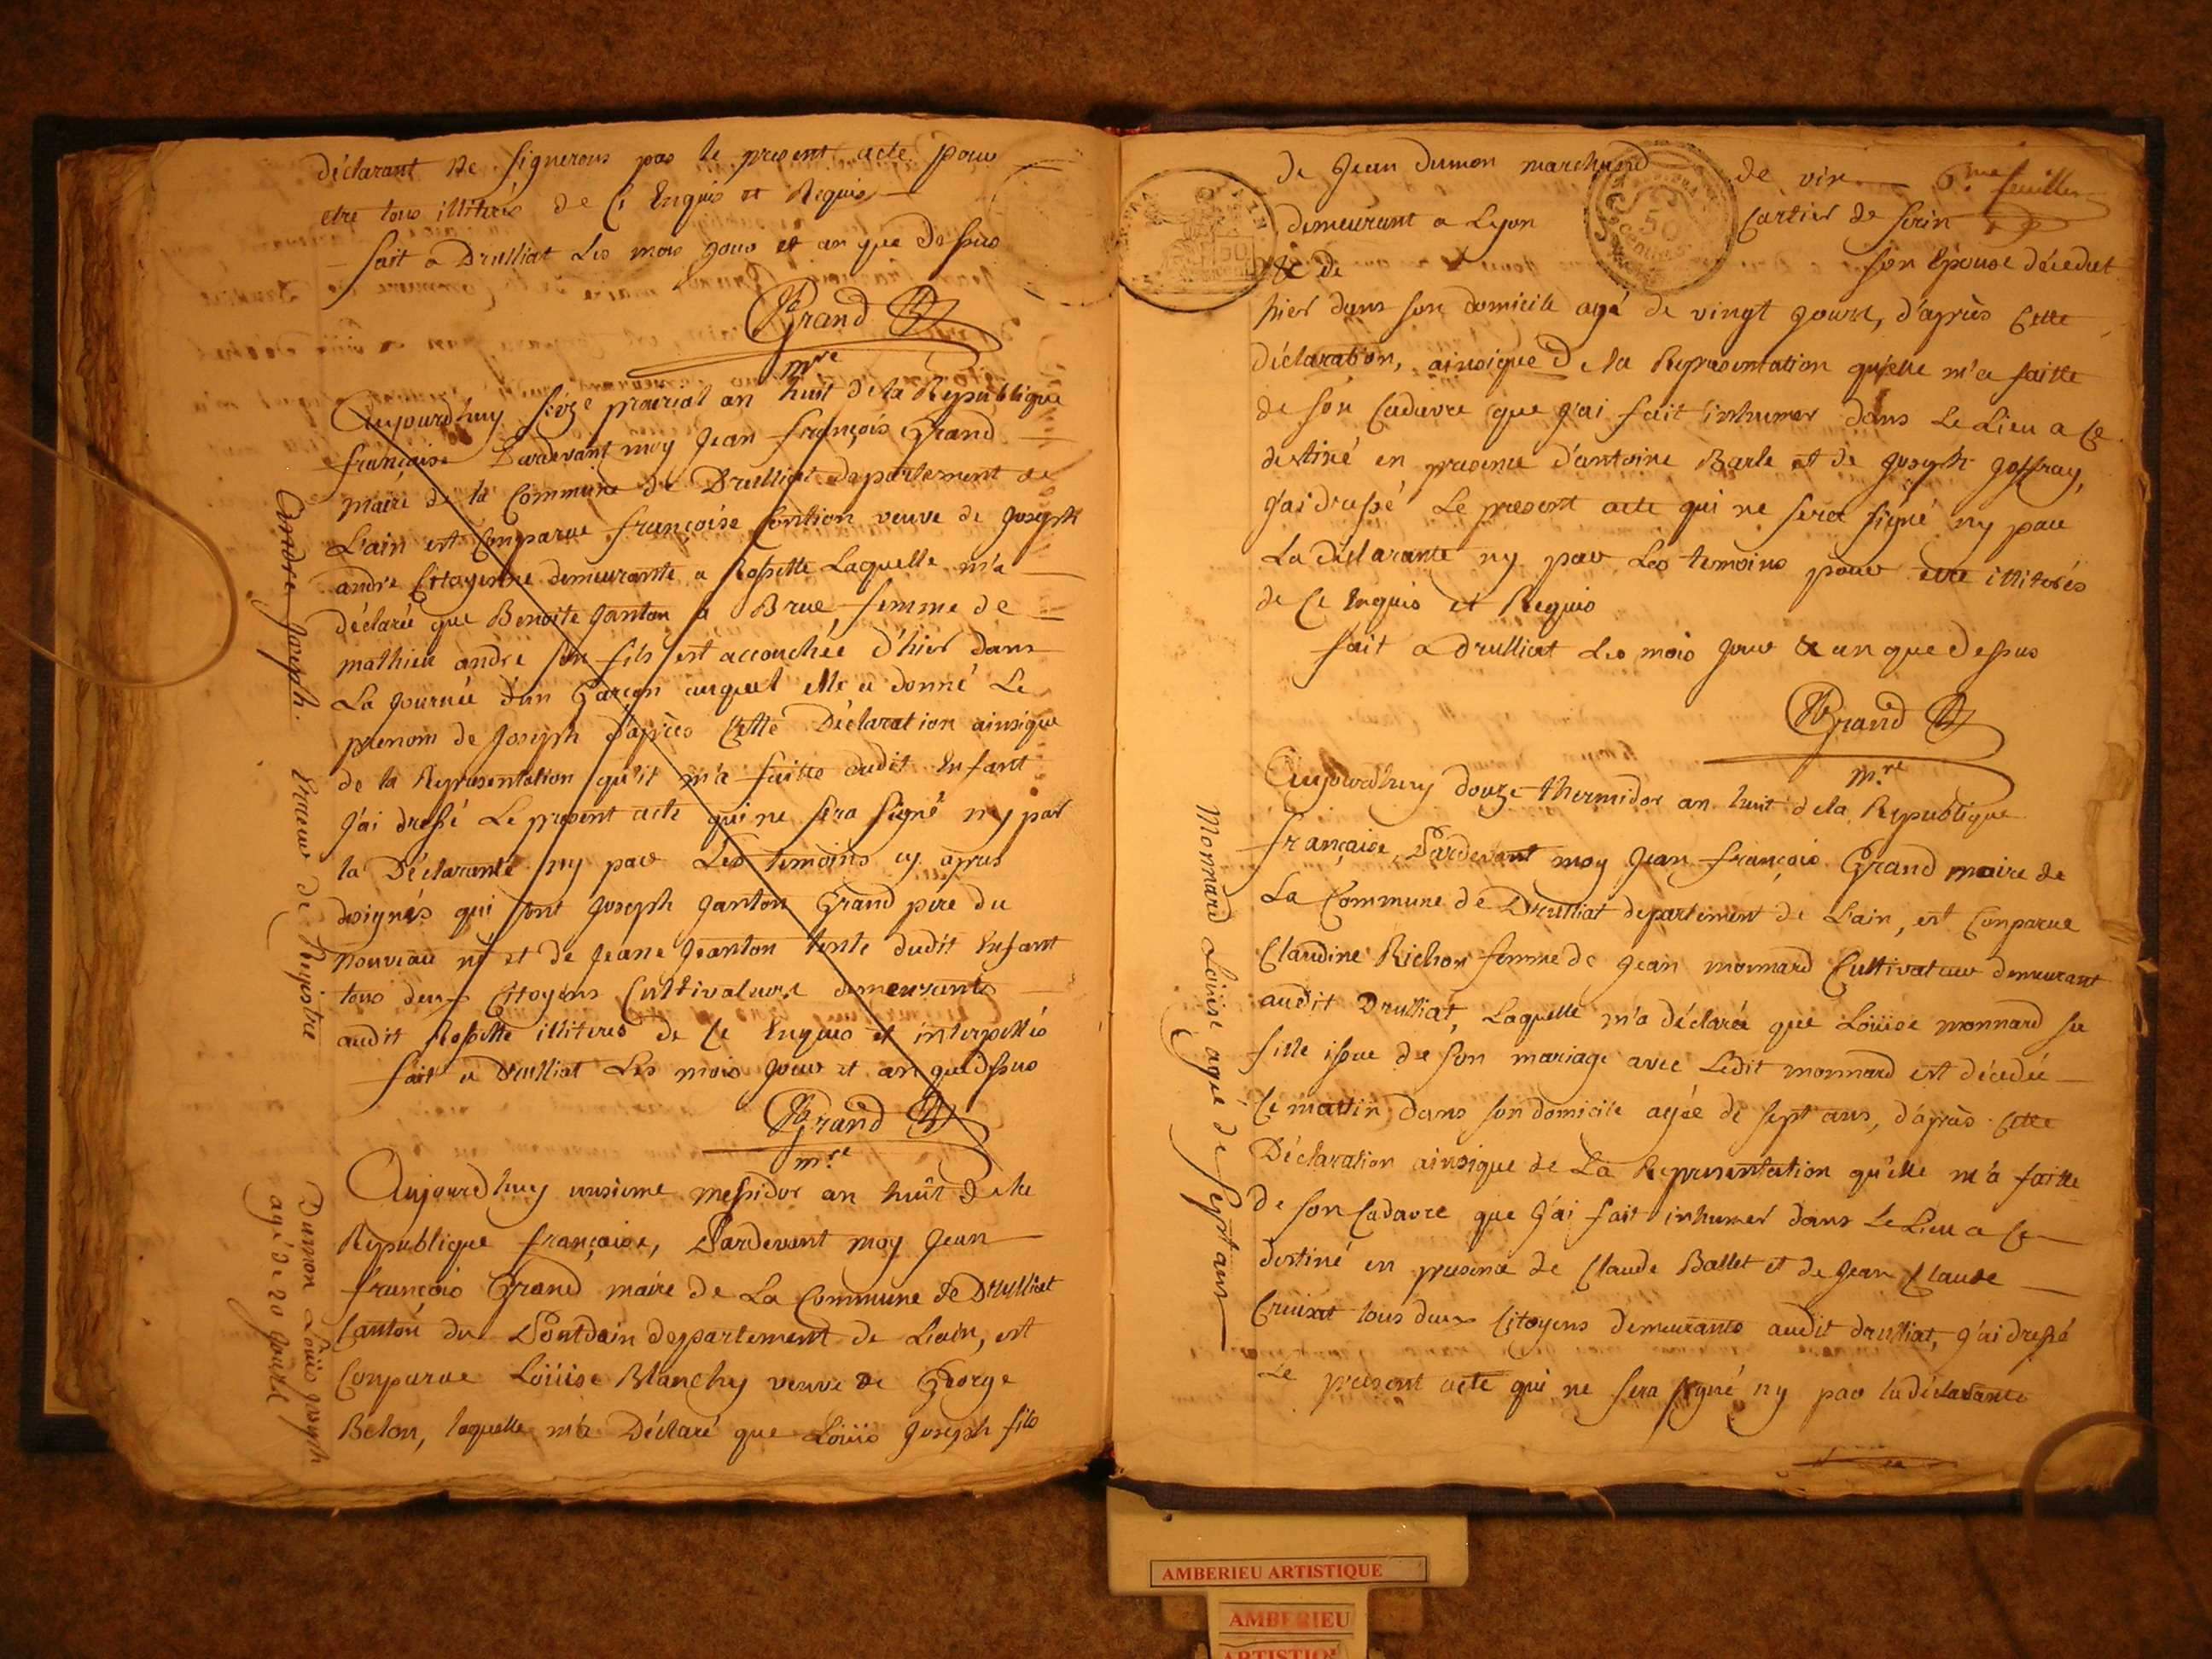 déclarant ne signerons pas le present acte pour
etre tous illiterés de ce Enquis et Requis
fait a Drulliat Les mois jour et an que Dessus
Grand
mre
Aujourdhuy seize prairial an huit de la Republique
française Pardevant moy jean françois Grand
maire de la Commune de Drulliat departement de
L'ain est Comparue françoise veuve de joseph
andré Citoyenne demeurante a Rossette Laquelle m'a
déclaré que Benoite janton a Brue femme de
mathieu andré son fils est accouchée d'hier dans
La journée d'un Garçon auquel elle a donné Le
prenom de joseph d'après Cette Déclaration ainsique
de la Representation qu'il m'a faitte dudit Enfant
j'ai dressé Le present acte qui ne sera signé ny par
la Déclarante ny par Les temoins cy apres
designés qui sont joseph janton Grand pere du
nouveau né et de jeane jeanton tente dudit Enfant
tous deux Citoyens Cultivateurs demeurants
audit Rossette illiteres de Ce Enquis et interpellés
fait a Drulliat Les mois jour et an que dessus
Grand
mre
Aujourdhuy unsieme messidor an huit de la
Republique française, Pardevant moy jean
françois Grand maire de La Commune de Drulliat
Canton du Pontdain departement de Lain, est
Comparue Loüise Blanchy veuve de George
Belon, laquelle m'a Déclaré que Loüis joseph fils
andré joseph.
Erreur de Registre
Dumon Loüis joseph
agé de 20 jours
de jean dumon marchand de vin 6me feuillet
demeurant a Lyon Cartier de serin
& de son Epouse décedet
hier dans son domicile agé de vingt jours, d'après Cette
déclaration, ainsique De la Representation qu'elle m'a faitte
de son Cadavre que j'ai fait inhumer dans Le Lieu a Ce
destiné en presence d'antoine Barle et de joseph joffray,
j'ai dressé Le present acte qui ne sera signé ny par
La déclarante ny par Les temoins pour etre illiterés
de Ce Enquis et Requis
fait a drulliat Les mois jour & an que dessus
Grand
mre
50
Aujourdhuy douze thermidor an huit de la Republique
française, Pardevant moy jean françois Grand maire de
La Commune de Drulliat departement de L'ain, est Comparue
Claudine Richon femme de jean monnard Cultivateur demeurant
audit Drulliat, Laquelle m'a déclaré que Loüise monnard sa
fille issue de son mariage avec Ledit monnard est décedée
Ce mattin dans son domicile agée de sept ans, d'après Cette
Déclaration ainsique de La Representation qu'elle m'a faitte
de son Cadavre que j'ai fait inhumer dans Le Lieu a Ce
destiné en presence de Claude Ballet et de jean Claude
Cruisat tous deux Citoyens demeurants audit drulliat, j'ai dressé
Le present acte qui ne sera signé ny par la déclarante
Monnard Loüise agée de Sept ans
AMBERIEU ARTISTIQUE
AMBERIEU
ARTISTIQUE